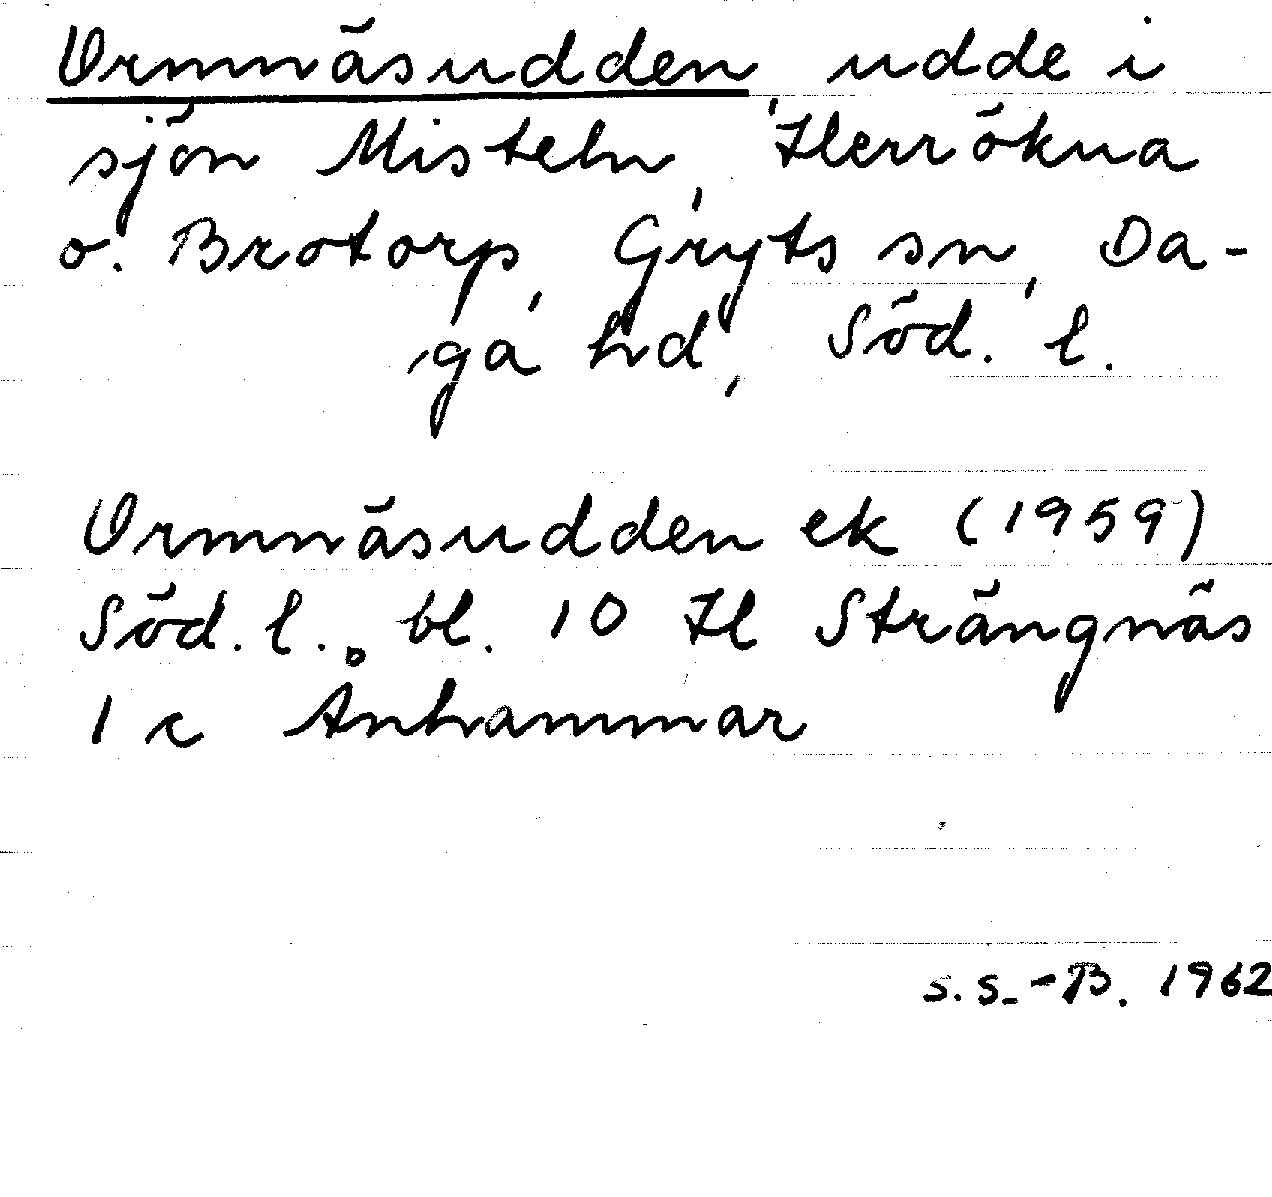 Ormnäsudden, udde i
sjön Misteln, Herrökna
o. Brotorp, Gryts sn, Da-
ga hd, Söd. l.
Ormnäsudden ek (1959)
Söd. l. bl. 10 H Strängnäs
1 c Ånhammar
S. S.-B. 1962